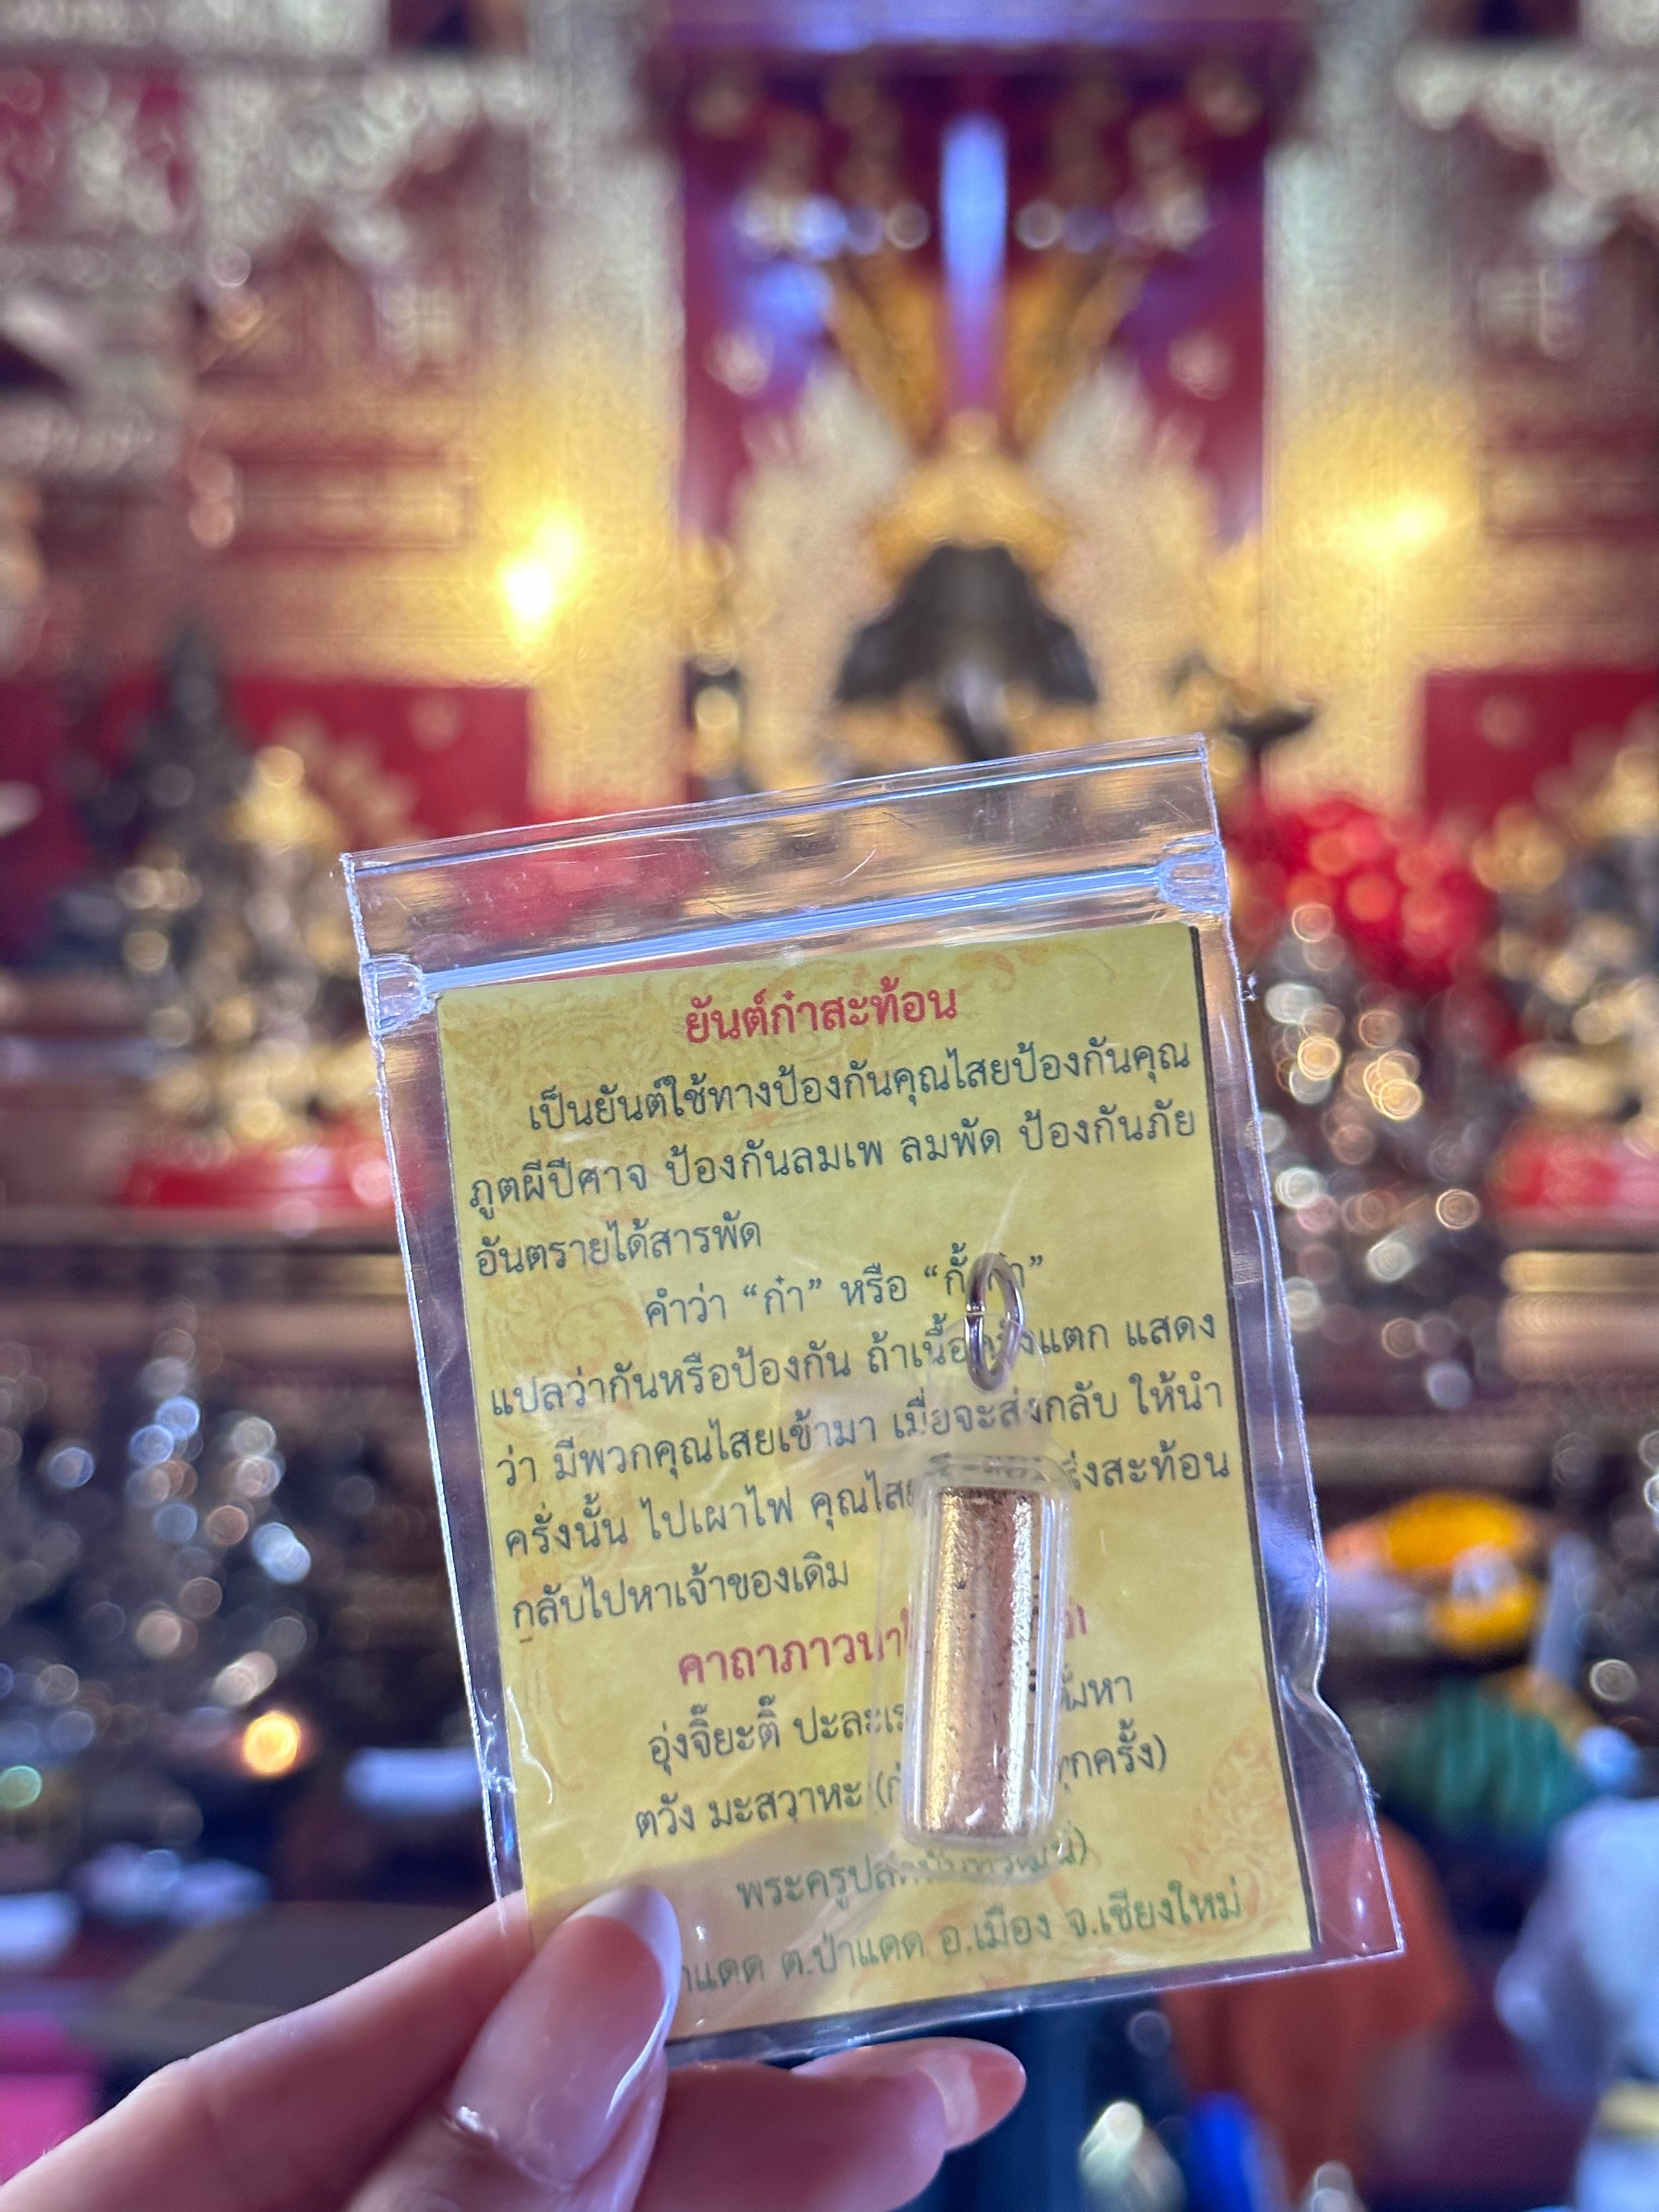 ยันต์ก๋าสะท้อน
เป็นยันต์ใช้ทางป้องกันคุณไสยป้องกันคุณ
ภูตผีปีศาจ ป้องกันลมเพ ลมพัด ป้องกันภัย
อันตรายได้สารพัด
คำว่า “ก๋า” หรือ
แปลว่ากันหรือป้องกัน ถ้าเนื้อครั่งแตก แสดง
ว่า มีพวกคุณไสยเข้ามา เมื่อจะส่งกลับ ให้นำ
ครั่งนั้น ไปเผาไฟ คุณไสย ส่งสะท้อน
กลับไปหาเจ้าของเดิม
คาถาภาวนา
อุ่งจิ๊ยะติ๊
ตวัง มะสวาหะ ทุกครั้ง)
พระครูปลัด
ต.ป่าแดด อ.เมือง จ.เชียงใหม่